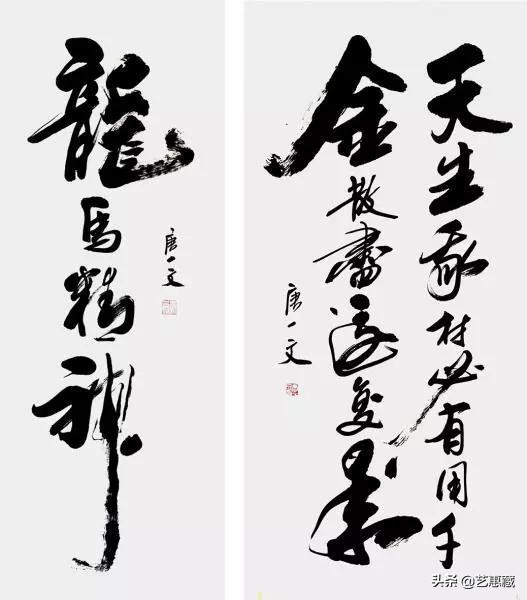 龍馬精神
唐一文
天生我材必有用千
金散盡還复來
唐一文
头条 @艺惠藏